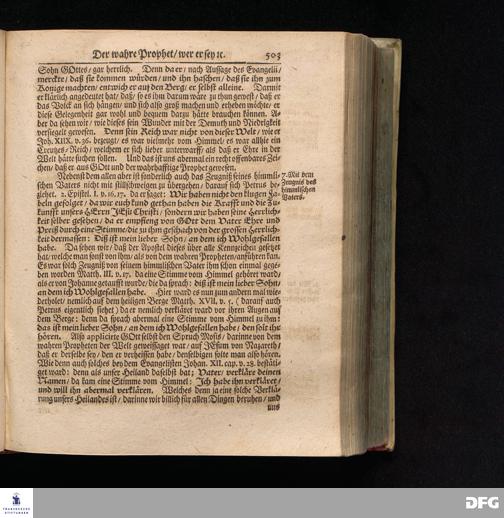 Der wahre Prophet/ wer er sey ꝛc. 503
Sohn GOttes/ gar herrlich. Denn da er/ nach Aussage des Evangelii/
merckte/ daß sie kommen würden/ und ihn haschen/ daß sie ihn zum
Könige machten/ entwich er auf den Berg/ er selbst alleine. Damit
er klärlich angedeutet hat/ daß/ so es ihm darum wäre zu thun gewest/ daß er
das Volck an sich hängen/ und sich also groß machen und erheben möchte/ er
diese Gelegenheit gar wohl und bequem darzu hätte brauchen können. A-
ber da sehen wir/ wie dieses sein Wunder mit der Demuth und Niedrigkeit
versiegelt gewesen. Denn sein Reich war nicht von dieser Welt/ wie er
Joh. XIIX. v. 36. bezeugt/ es war vielmehr vom Himmel/ es war allhie ein
Creutzes-Reich/ welchem er sich lieber unterwarff/ als daß er Ehre in der
Welt hätte suchen sollen. Und das ist uns abermal ein recht offenbares Zei-
chen/ daß er aus GOtt und der wahrhafftige Prophet gewesen.
Nebenst dem allen aber ist sonderlich auch das Zeugniß seines himmli-
schen Vaters nicht mit stillschweigen zu übergehen/ darauf sich Petrus be-
ziehet. 2. Epistel. I. v. 16. 17. da er saget: Wir haben nicht den klugen Fa-
beln gefolget/ da wir euch kund gethan haben die Krafft und die Zu-
kunfft unsers HErrn JEsu Christi/ sondern wir haben seine Herrlich-
keit selber gesehen/ da er empfieng von GOtt dem Vater Ehre und
Preiß durch eine Stimme/ die zu ihm geschach von der grossen Herrlich-
keit dermassen: Diß ist mein lieber Sohn/ an dem ich Wohlgefallen
habe. Da sehen wir/ daß der Apostel dieses über alle Kennzeichen gesetzet
hat/ welche man sonst von ihm/ als von dem wahren Propheten/ anführen kan.
Es war solch Zeugniß von seinem himmlischen Vater ihm schon einmal gege-
ben worden Matth. III. v. 17. da eine Stimme vom Himmel gehöret ward/
als er von Johanne getaufft wurde/ die da sprach: diß ist mein lieber Sohn/
an dem ich Wohlgefallen habe. Hier ward es nun zum andern mal wie-
derholet/ nemlich auf dem heiligen Berge Matth. XVII. v. 5. (darauf auch
Petrus eigentlich siehet) da er nemlich verkläret ward vor ihren Augen auf
dem Berge: denn da sprach abermal eine Stimme vom Himmel zu ihm:
das ist mein lieber Sohn/ an dem ich Wohlgefallen habe/ den solt ihr
hören. Also appliciete GOtt selbst den Spruch Mosis/ darinne von dem
wahren Propheten der Welt geweissaget war/ auf JEsum von Nazareth/
daß er derselbe sey/ den er verheissen habe/ denselbigen solte man also hören.
Wie denn auch solches bey dem Evangelisten Johan. XII. cap. v. 28. bestäti-
get ward: denn als unser Heiland daselbst bat; Vater/ verkläre deinen
Namen/ da kam eine Stimme vom Himmel: Ich habe ihn verkläret/
und will ihn abermal verklären. Welches denn ja eine solche Verklä-
rung unsers Heilandes ist/ darinne wir billich für allen Dingen beruhen/ und
uns
7. Mit dem
Zeugniß des
himmlischen
Vaters.
FRANCKESCHE
STIFTUNGEN
DFG